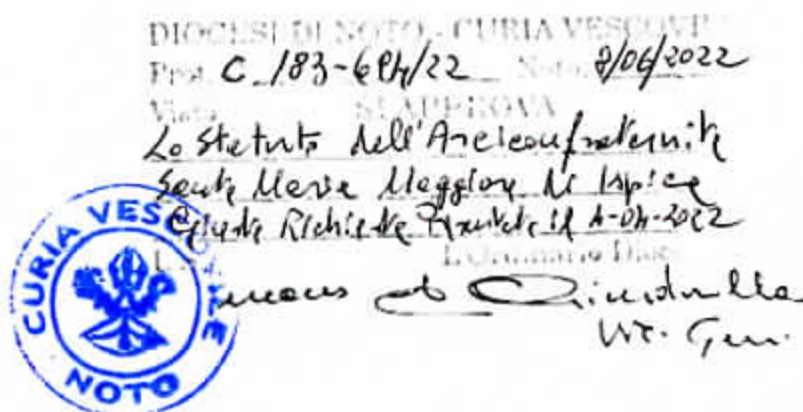 DIOCESI DI NOTO - CURIA VESCOVI
Prot. C. 183-6Ph/22 Noto, 8/06/2022
Visto: SI APPROVA
Lo Statuto dell'Arciconfraternita
Santa Maria Maggiore di Ispica
Giusta Richiesta il 4-04-2022
L'Ordinario Dioc
Vic. Gen.
CURIA VESCOVILE
NOTO